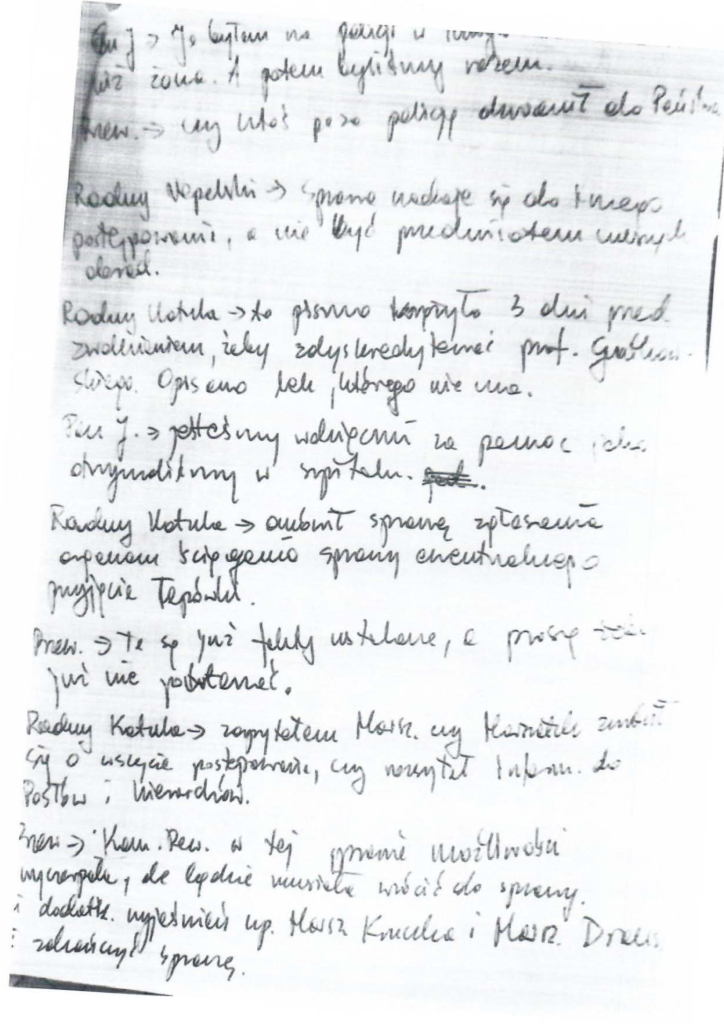 Pan J → Ja byłem na policji w
już żona. A potem byliśmy razem.
Przew. → czy ktoś poza policją dzwonił do Państwa
Radny → Sprawa nadaje się do innego
postępowania, a nie być przedmiotem naszych
obrad.
Radny Kotula → to pismo 3 dni przed
zwolnieniem, żeby zdyskredytować prof.
skiego. Opisano lek, którego nie ma.
Pan J. → jesteśmy wdzięczni za pomoc jaką
otrzymaliśmy w szpitalu.
Radny Kotula → omówił sprawę zgłaszania
organom ścigania sprawy ewentualnego
przyjęcia łapówki.
Przew. → Te są już fakty ustalone, a proszę
już nie powtarzać.
Radny Kotula → zapytałem Marsz. czy Marszałek zwrócił
się o wszczęcie postępowania, czy rozsyłał inform. do
Posłów i hierarchów.
Przew → Kom. Rew. w tej sprawie możliwości
wyczerpała, ale będzie musiała wrócić do sprawy.
i dodatk. wyjaśnień np. Marsz Kruczka i Marsz.
i zakończyć sprawę.